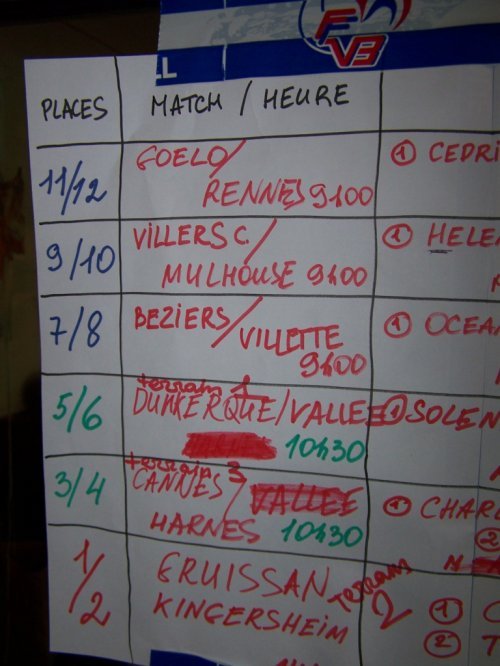 FVB
LL
PLACES MATCH / HEURE
11/12 GOELO/ ① CEDRI
RENNES 9h00
9/10 VILLERS C. / ① HELEN
MULHOUSE 9h00
7/8 BEZIERS/ ① OCEAN
VILLETTE
9h00
terrain 1
5/6 DUNKERQUE/VALLEE ① SOLEN
10h30
terrain 3
3/4 CANNES / VALLEE ① CHARL
HARNES 10h30 ②
1/2 GRUISSAN terrain 2
KINGERSHEIM ① C
② T